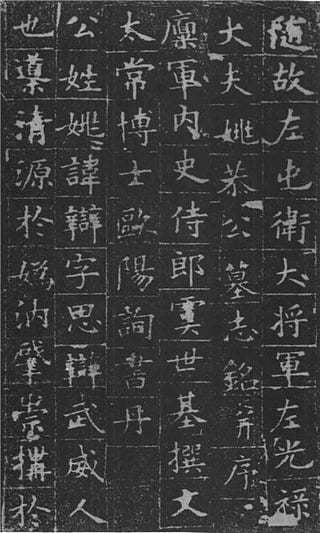 隨故左屯衛大将軍左光祿
大夫姚恭公墓志銘并序
廩軍内史侍郎虞世基撰文
太常博士歐陽詢書丹
公姓姚諱辯字思辯武威人
也導清源於媯汭肇崇搆於